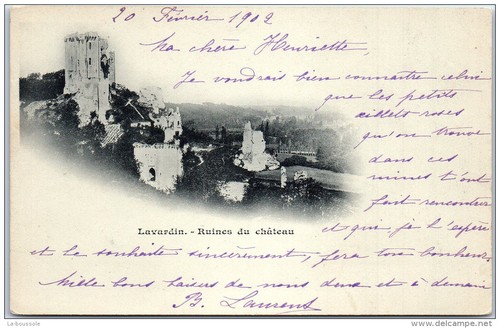 20 Février 1902
Ma chère Henriette,
Je voudrais bien connaître celui
que les petits
œillets roses
qu'on trouve
dans ces
ruines t'ont
fait rencontrer
et que je l'espère
Lavardin. - Ruines du château
et le souhaite sincèrement, fera ton bonheur.
Mille bons baisers de nous deux et à demain
B. Laurent
La-boussole
www.delcampe.net